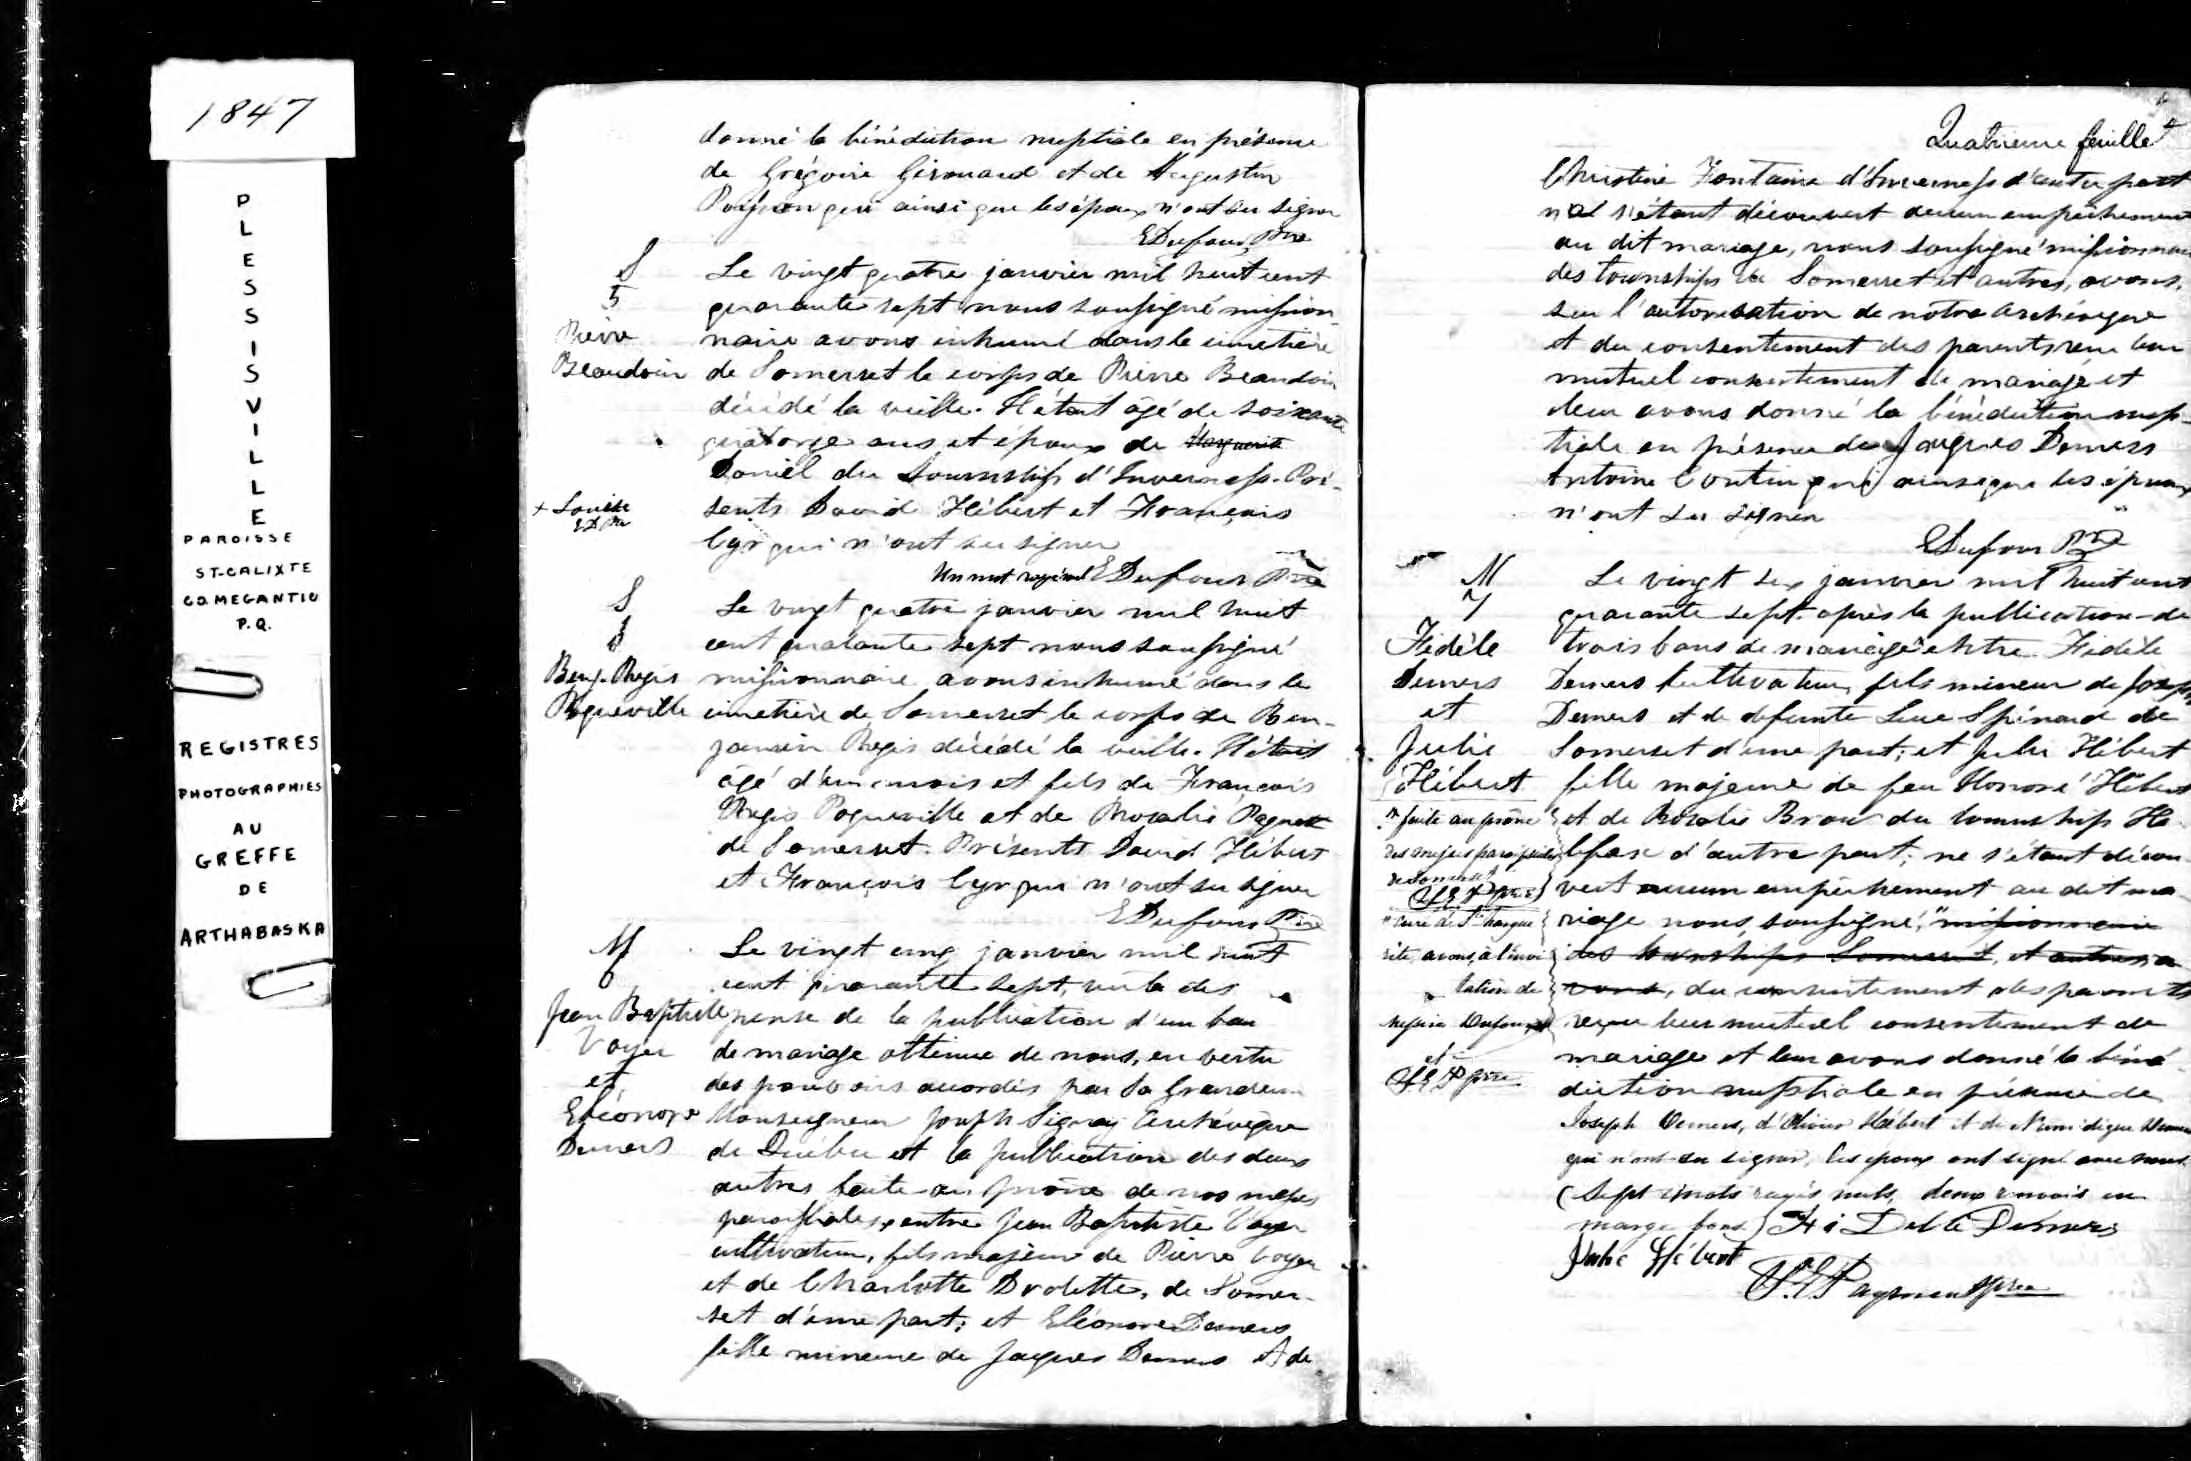 1847
PLESSISVILLE
PAROISSE
ST-CALIXTE
CO. MEGANTIC
P.Q.
REGISTRES
PHOTOGRAPHIES
AU
GREFFE
DE
ARTHABASKA
donné la bénédiction nuptiale en présence
de Grégoire Girouard et de Augustin
qui ainsi que les époux n'ont su signer
EDufour Ptre
S
5
Pierre
Beaudoin
+ Louise
Le vingt quatre janvier mil huit cent
quarante sept nous soussigné mission-
naire avons inhumé dans le cimetière
de Somerset le corps de Pierre Beaudoin
décédé la veille. Il était âgé de soixante
quatorze ans et époux de Marguerite
Daniel du Township d'Inverness. Pré-
sents David Hébert et François
Cyr qui n'ont su signer
Un mot rayé nul EDufour Ptre
S
Benj. Regis
Poqueville
Le vingt quatre janvier mil huit
cent quarante sept nous soussigné
missionnaire avons inhumé dans le
cimetière de Somerset le corps de Ben-
jamin Regis décédé la veille. Il était
âgé d'un mois et fils de François
Regis Poqueville et de Rosalie
de Somerset. Présents David Hébert
et François Cyr qui n'ont su signer
EDufour Ptre
M
6
Jean Baptiste
Voyer
et
Eléonore
Demers
Le vingt cinq janvier mil huit
cent quarante sept, vu la dis
pense de la publication d'un ban
de mariage obtenue de nous, en vertu
des pouvoirs accordés par Sa Grandeur
Monseigneur Joseph Signay Archévêque
de Québec et la publication des deux
autres faite au prône de nos messes
paroissiales, entre Jean Baptiste Voyer
cultivateur, fils majeur de Pierre Voyer
et de Charlotte Drolette, de Somer-
set d'une part; et Eléonore Demers
fille mineure de Jacques Demers et de
Quatrieme feuille
Christine Fontaine d'Inverness d'autre part
n'al s'étant découvert aucun empêchement
au dit mariage, nous soussigné missionnaire
des townships de Somerset et autres, avons,
sur l'autorisation de notre Archévêque
et du consentement des parents reçu leur
mutuel consentement de mariage et
leur avons donné la bénédiction nup-
tiale en présence de Jacques Demers
Antoine Boutin qui ainsi que les époux
n'ont su signer
EDufour Ptre
M
7
Fidèle
Demers
et
Julie
Hébert
Le vingt six janvier mil huit cent
quarante sept après la publication de
trois bans de mariage entre Fidèle
Demers Cultivateur, fils mineur de Joseph
Demers et de defunte Luce Spénard de
Somerset d'une part; et Julie Hébert
fille majeure de feu Honoré Hébert
et de Rosalie Brow du township Ha-
lifax d'autre part; ne s'étant décou
vert aucun empêchement au dit ma
riage nous, soussigné, missionnaire
des townships Somerset, et autres, a
vons, du consentement des parents
reçu leur mutuel consentement de
mariage et leur avons donné la béné
diction nuptiale en présence de
Joseph Demers, d'Olivier Hébert et de
qui n'ont su signer, les epoux ont signé avec nous
(Sept mots rayés nuls, deux renvois en
marge bons) Fi Dele Demers
Julie Hébert
faite au prône
des messes paroissiales
de Somerset
curé de Ste Margue
rite, avons, à l'invi
tation de
messire Dufour